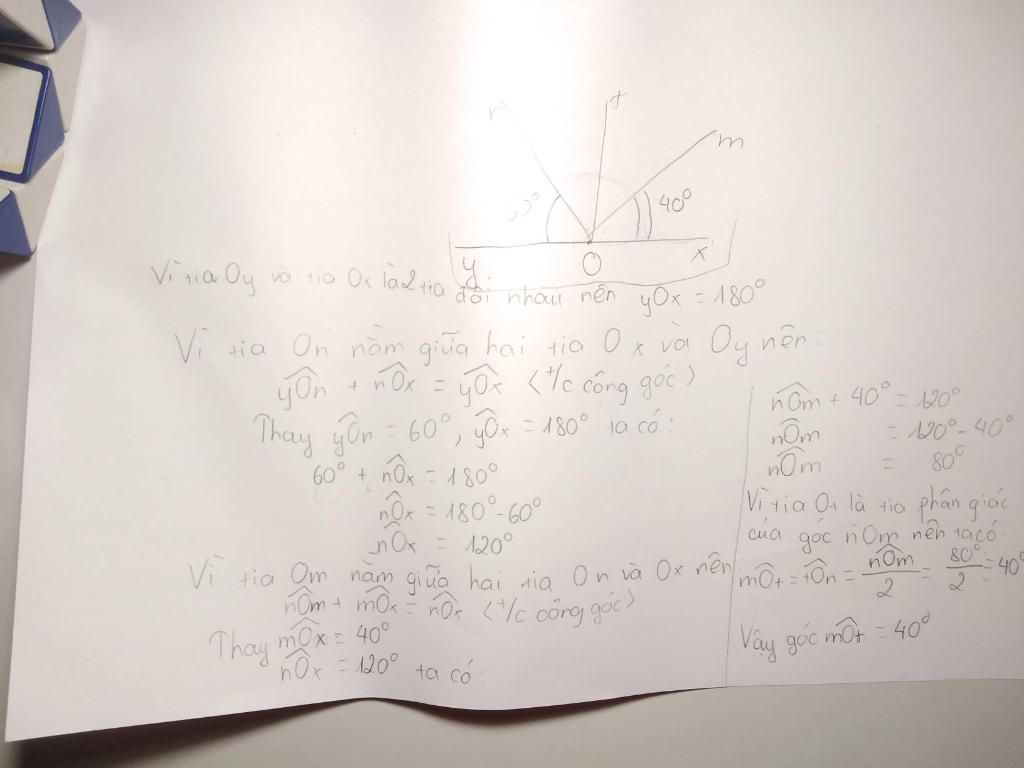 n
t
m
60°
40°
y
O
x
Vì tia Oy và tia Ox là 2 tia đối nhau nên yOx = 180°
Vì tia On nằm giữa hai tia Ox và Oy nên:
\widehat{yOn} + \widehat{nOx} = \widehat{yOx} <t/c cộng góc>
Thay \widehat{yOn} = 60°, \widehat{yOx} = 180° ta có:
60° + \widehat{nOx} = 180°
\widehat{nOx} = 180° - 60°
\widehat{nOx} = 120°
Vì tia Om nằm giữa hai tia On và Ox nên
\widehat{nOm} + \widehat{mOx} = \widehat{nOx} <t/c cộng góc>
Thay \widehat{mOx} = 40°
\widehat{nOx} = 120° ta có:
\widehat{nOm} + 40° = 120°
\widehat{nOm} = 120° - 40°
\widehat{nOm} = 80°
Vì tia Ot là tia phân giác
của góc nOm nên ta có:
\widehat{mOt} = \widehat{tOn} = \frac{\widehat{nOm}}{2} = \frac{80°}{2} = 40°
Vậy góc \widehat{mOt} = 40°